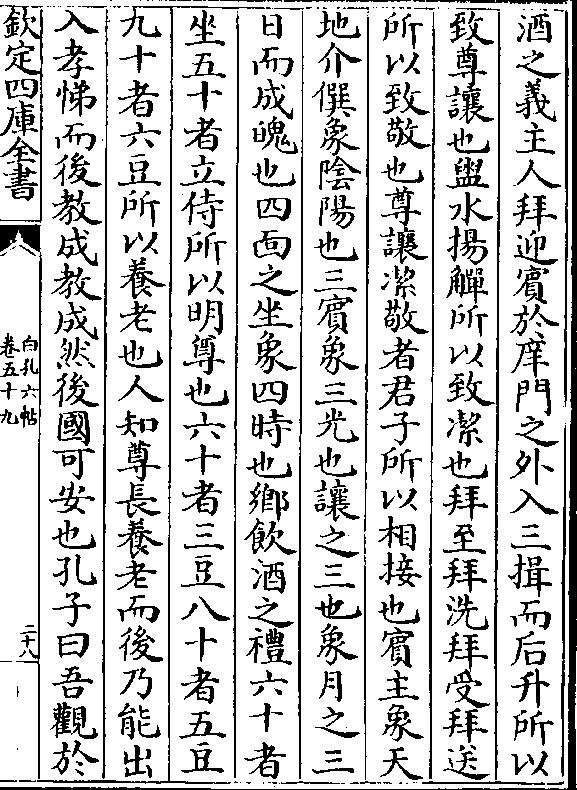 酒之義主人拜迎賓於庠門之外入三揖而后升所以
致尊讓也盥水揚觶所以致潔也拜至拜洗拜受拜送
所以致敬也尊讓潔敬者君子所以相接也賓主象天
地介僎象陰陽也三賓象三光也讓之三也象月之三
日而成魄也四面之坐象四時也鄉飲酒之禮六十者
坐五十者立侍所以明尊也六十者三豆八十者五豆
九十者六豆所以養老也人知尊長養老而後乃能出
入孝悌而後教成教成然後國可安也孔子曰吾觀於
欽定四庫全書
白孔六帖
卷五十九
二十八